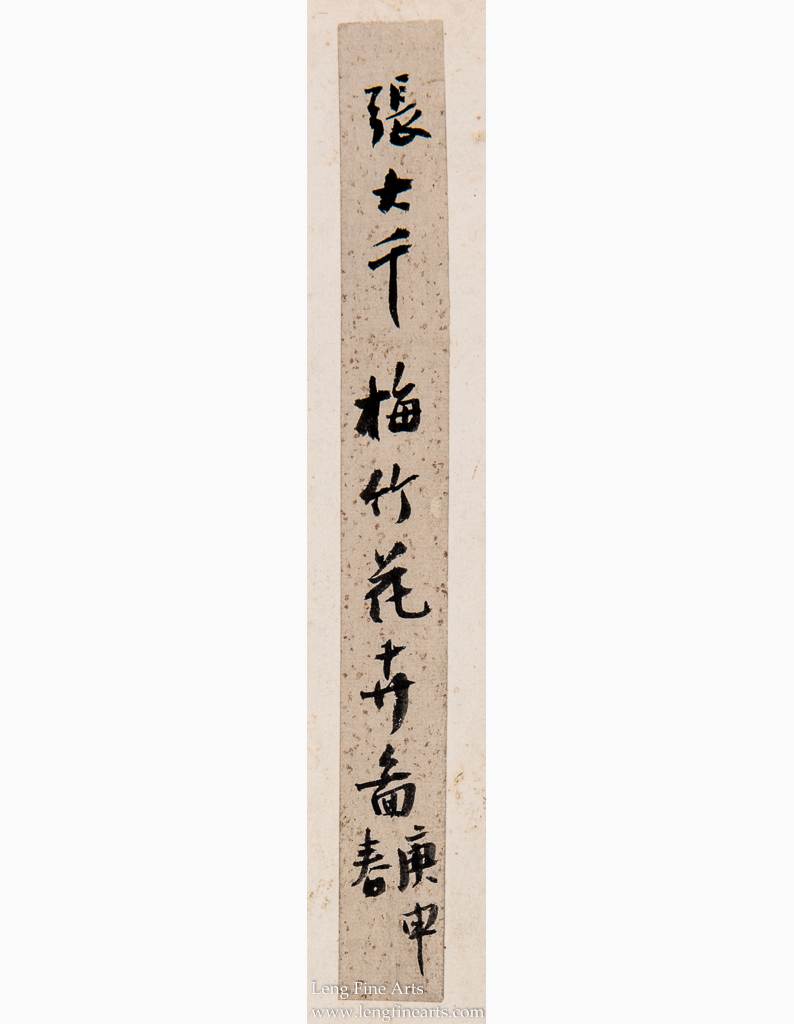 張大千 梅竹花卉啚
庚申
春
Leng Fine Arts
www.lengfinearts.com